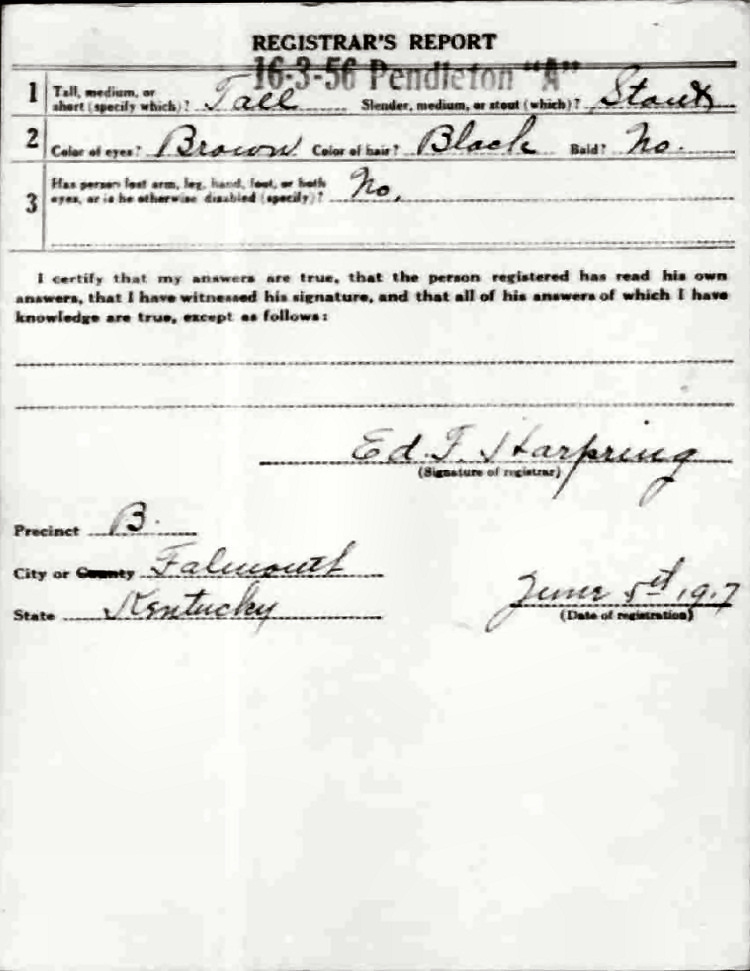 REGISTRAR'S REPORT
16-3-56 Pendleton "A"
1 Tall, medium, or short (specify which)? Tall Slender, medium, or stout (which)? Stout
2 Color of eyes? Brown Color of hair? Black Bald? No.
3 Has person lost arm, leg, hand, foot, or both
eyes, or is he otherwise disabled (specify)? No.
I certify that my answers are true, that the person registered has read his own
answers, that I have witnessed his signature, and that all of his answers of which I have
knowledge are true, except as follows:
Ed. F. Harpring
(Signature of registrar)
Precinct B.
City or County Falmouth
State Kentucky
June 5th 1917
(Date of registration)